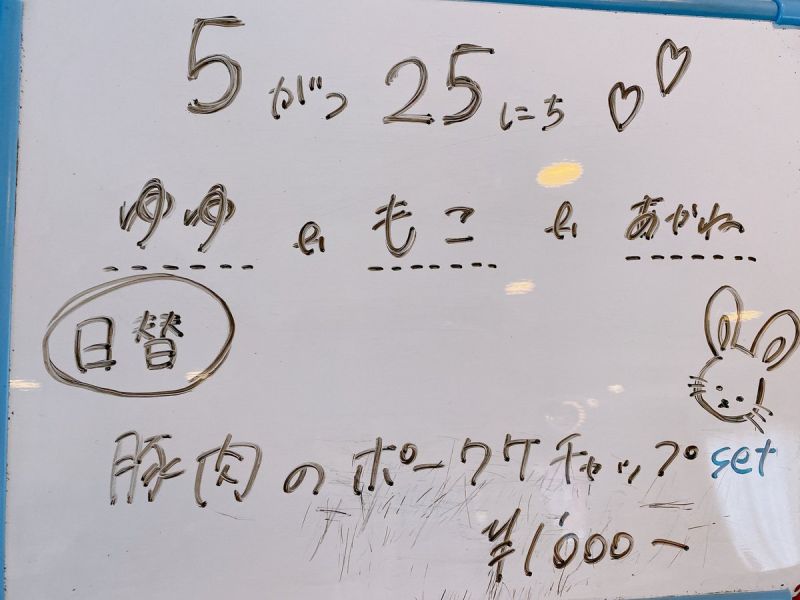 5がつ25にち
ゆゆ & もこ & あかね
日替
豚肉のポークケチャップset
¥1000ー